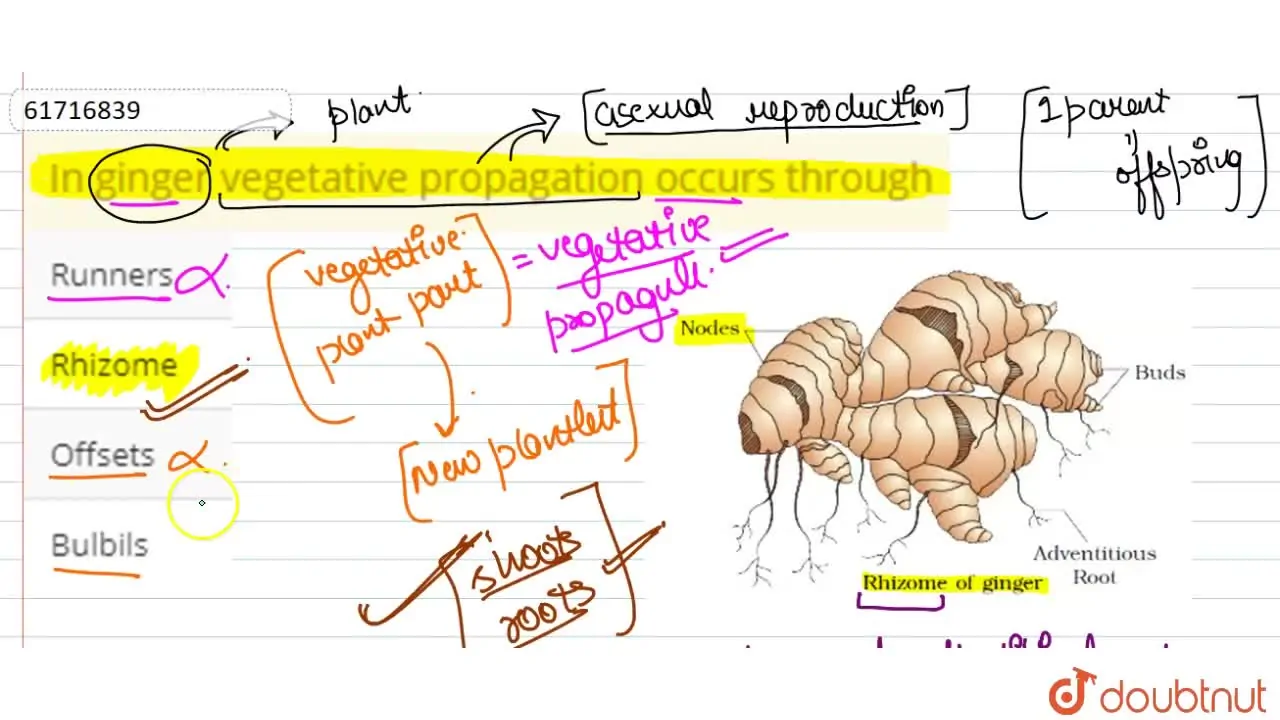 61716839
plant
[asexual reproduction]
[1 parent
offspring]
In ginger vegetative propagation occurs through
Runners
Rhizome
Offsets
Bulbils
[vegetative
plant part]
= vegetative
propagule.
[New plantlet]
[shoots
roots]
Nodes
Buds
Adventitious
Root
Rhizome of ginger
doubtnut